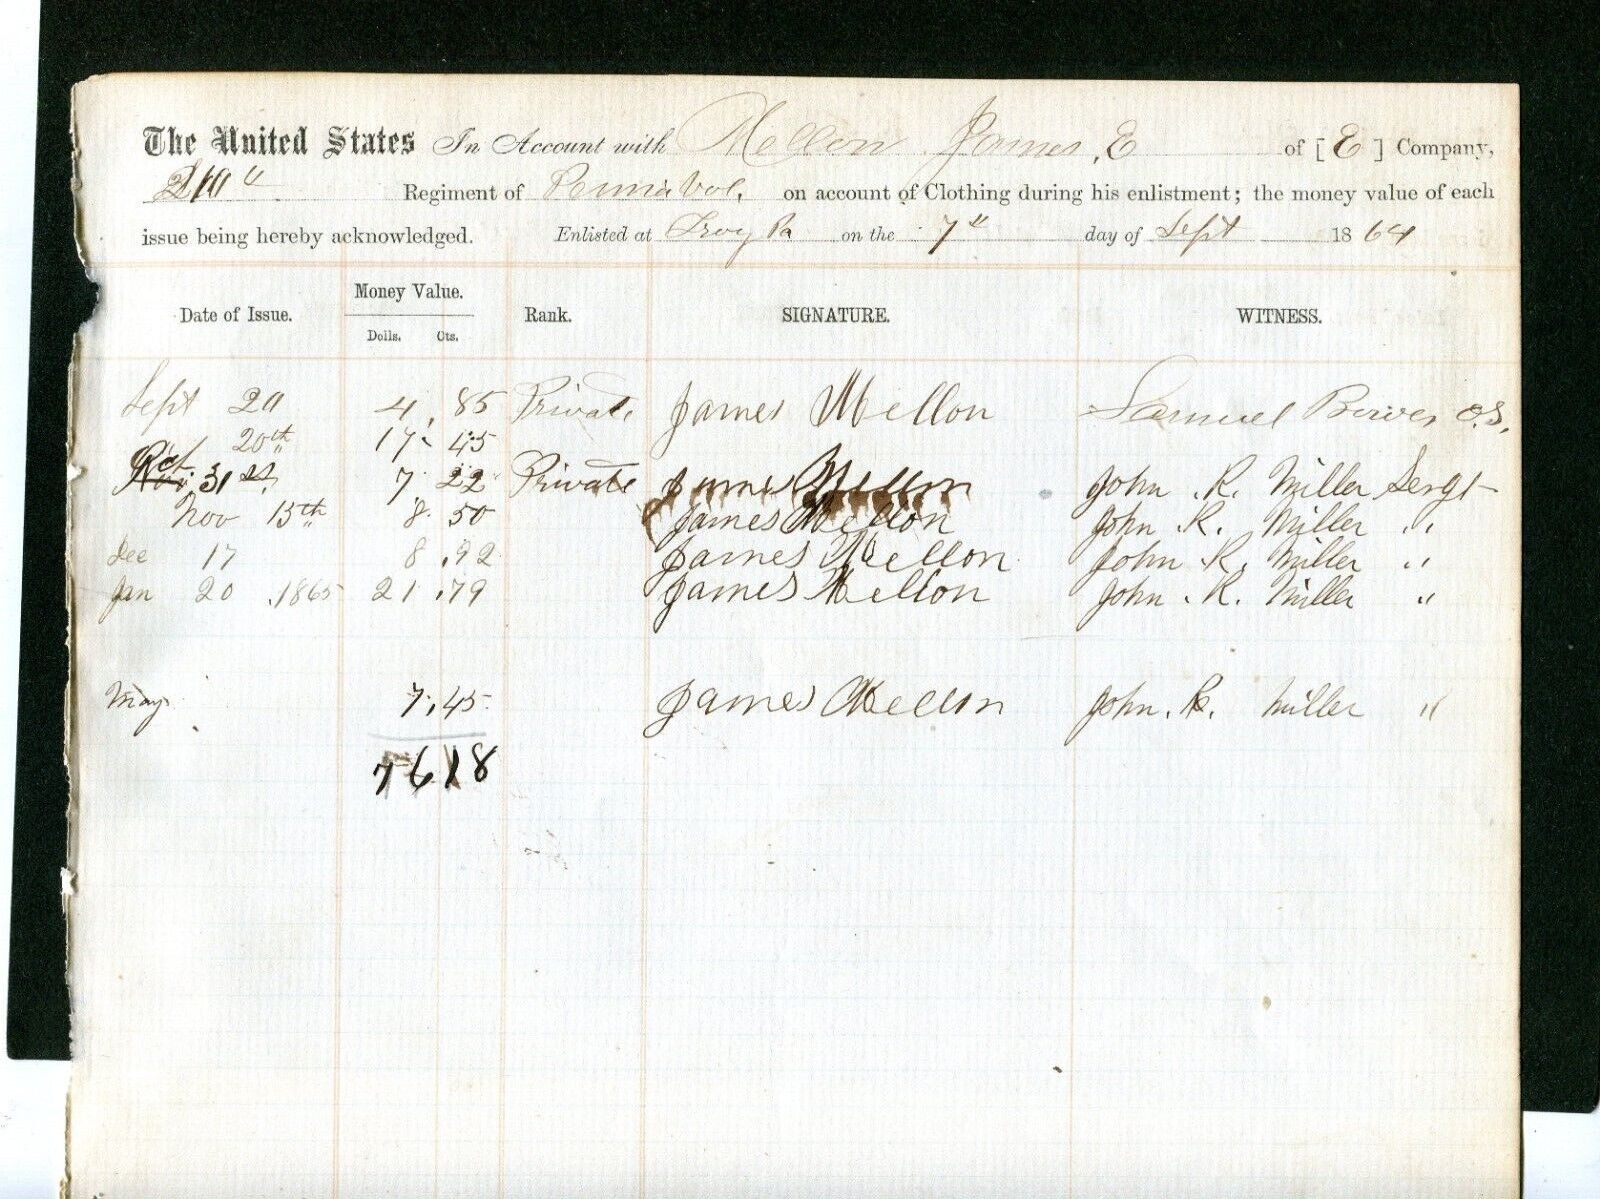 The United States In Account with Mellon James, E of [ E ] Company,
Regiment of Penna Vol. on account of Clothing during his enlistment; the money value of each
issue being hereby acknowledged. Enlisted at Troy Pa on the 7th day of Sept 1864
Date of Issue. Money Value. Rank. SIGNATURE. WITNESS.
Dolls. Cts.
Sept 20 4.85 Private James Mellon Samuel O.S.
20th 17.45
Oct 31st 7 22 Private James Mellon John R. Miller Sergt
Nov 15th 8.50 James Mellon John R. Miller "
Dec 17 8.92 James Mellon John R. Miller "
Jan 20 1865 21.79 James Mellon John R. Miller "
May 7.45 James Mellon John R. Miller "
7618